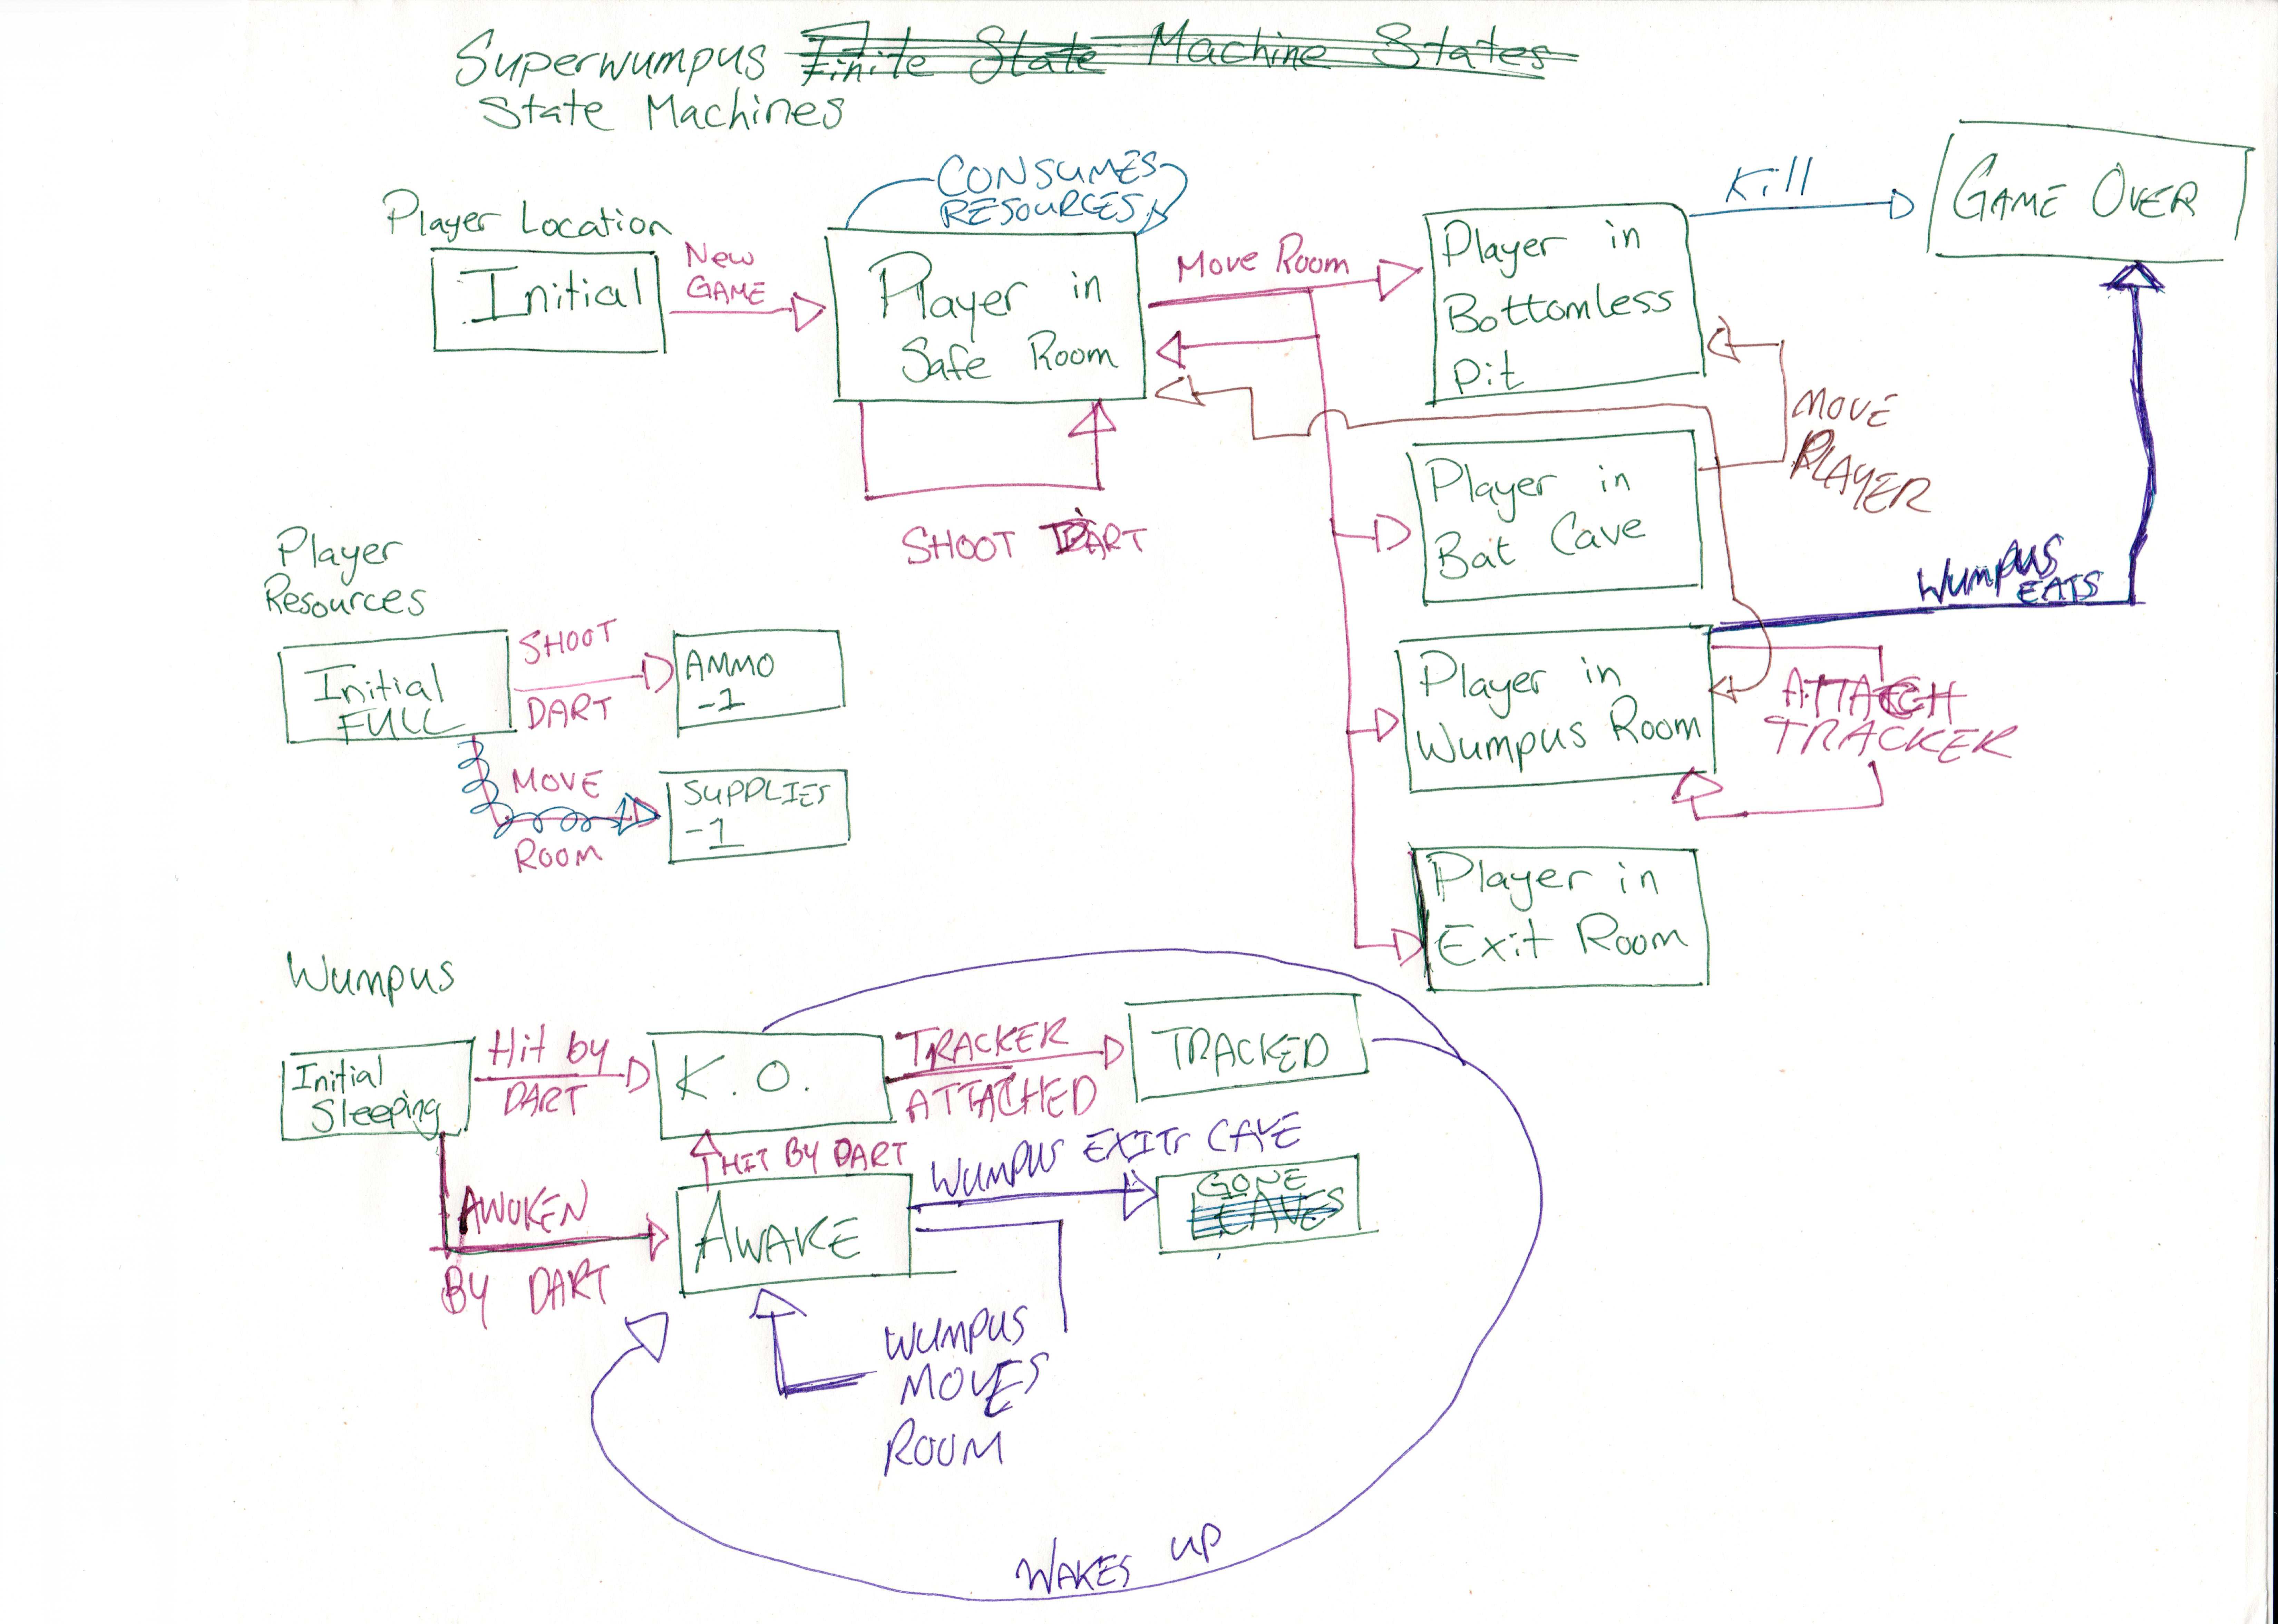 Superwumpus Finite State Machine States
State Machines
Player Location
Initial
New
GAME
CONSUMES
RESOURCES
Player in
Safe Room
SHOOT DART
Move Room
Player in
Bottomless
Pit
Kill
GAME OVER
MOVE
PLAYER
Player in
Bat Cave
WUMPUS
EATS
Player in
Wumpus Room
ATTATCH
TRACKER
Player in
Exit Room
Player
Resources
Initial
FULL
SHOOT
DART
AMMO
-1
MOVE
ROOM
SUPPLIES
-1
Wumpus
Initial
Sleeping
Hit by
DART
K.O.
TRACKER
ATTATCHED
TRACKED
AWOKEN
BY DART
HIT BY DART
AWAKE
WUMPUS EXITS CAVE
GONE
LEAVES
WUMPUS
MOVES
ROOM
WAKES UP